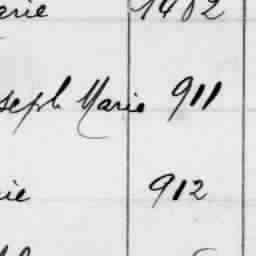 arie 1402
seph Marie 911
ie 912